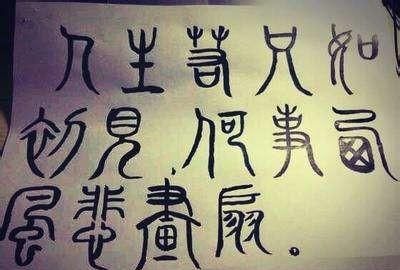 人生若只如
初見,何事西
風悲畫扇。